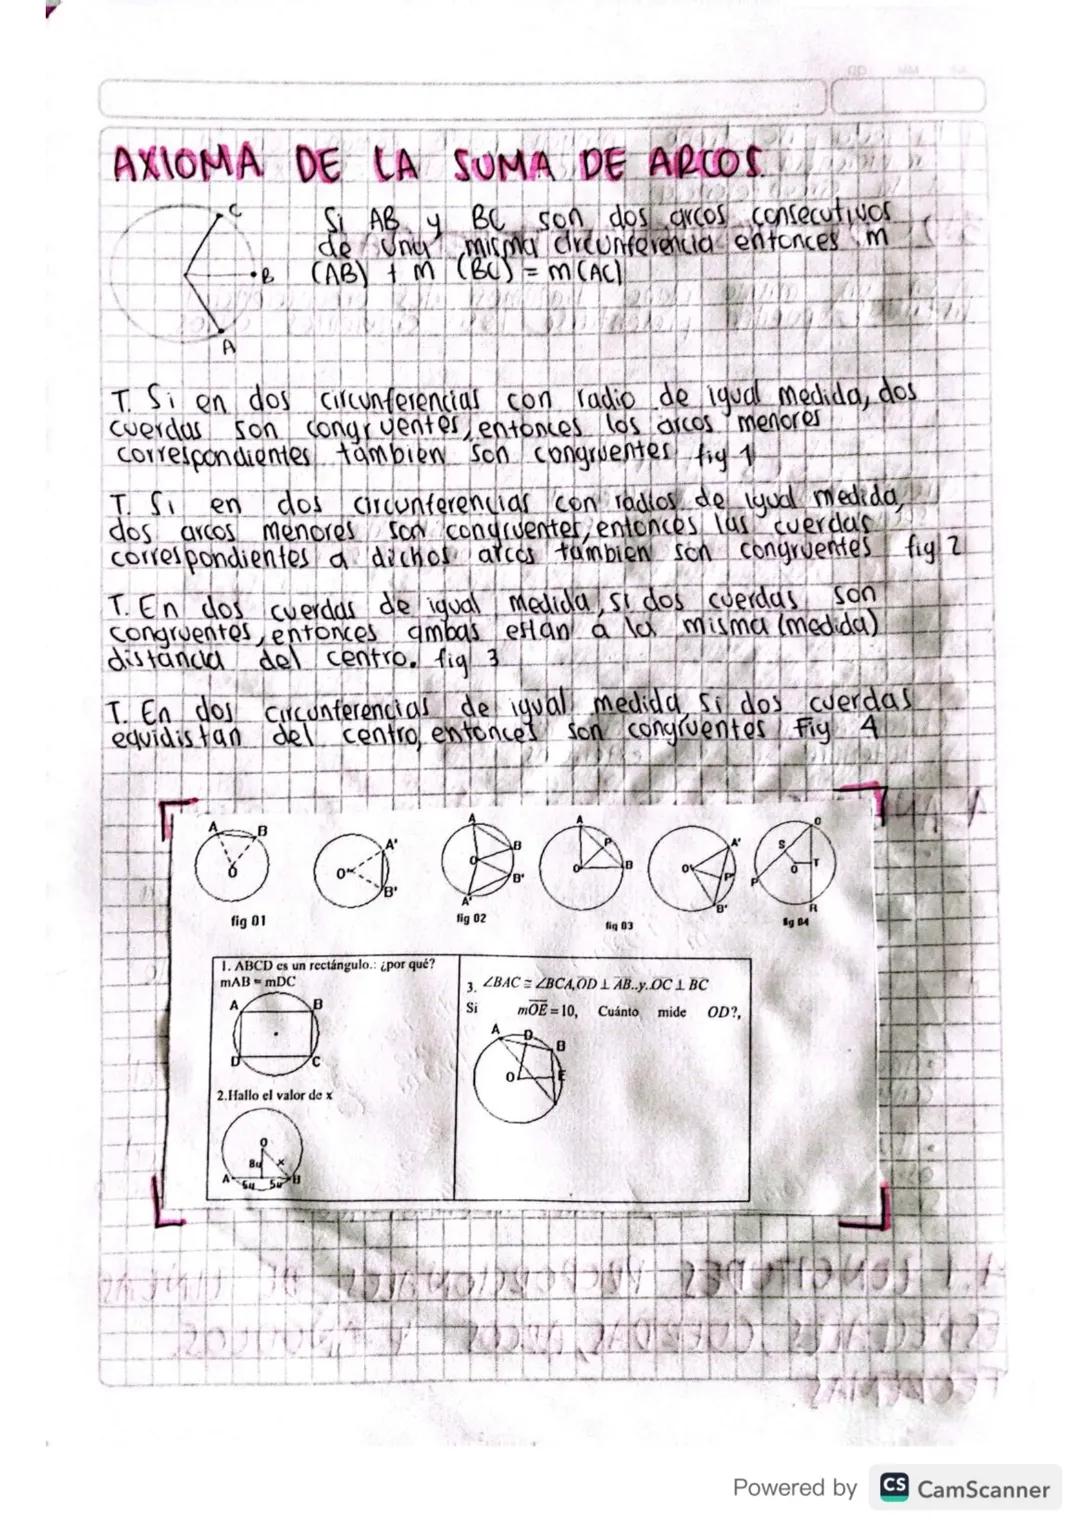 AXIOMA DE LA SUMA DE ARCOS
Si AB y BC son dos arcos consecutivos
de una misma circunferencia entonces m
(AB) + m (BC) = m(AC)
C
B
A
T. Si en dos circunferencias con radio de igual medida, dos
cuerdas son congruentes, entonces los arcos menores
correspondientes tambien son congruentes fig 1
T. Si en dos circunferencias con radios de igual medida,
dos arcos menores son congruentes, entonces las cuerdas
correspondientes a dichos arcos tambien son congruentes fig 2
T. En dos cuerdas de igual medida, si dos cuerdas son
congruentes, entonces ambas estan a la misma (medida)
distancia del centro. fig 3
T. En dos circunferencias de igual medida si dos cuerdas
equidistan del centro, entonces son congruentes Fig 4
A B O
O A' B'
A B O B' A'
A P B O
O' A' P' B'
Q S O T P R
fig 01
fig 02
fig 03
fig 04
1. ABCD es un rectángulo.: ¿por qué?
mAB = mDC
A B
D C
2.Hallo el valor de x
O
8u x
A 5u 5u B
3. ∠BAC ≅ ∠BCA, OD ⊥ AB..y..OC ⊥ BC
Si mOE = 10, Cuánto mide OD?,
A D B
O E
Powered by CS CamScanner